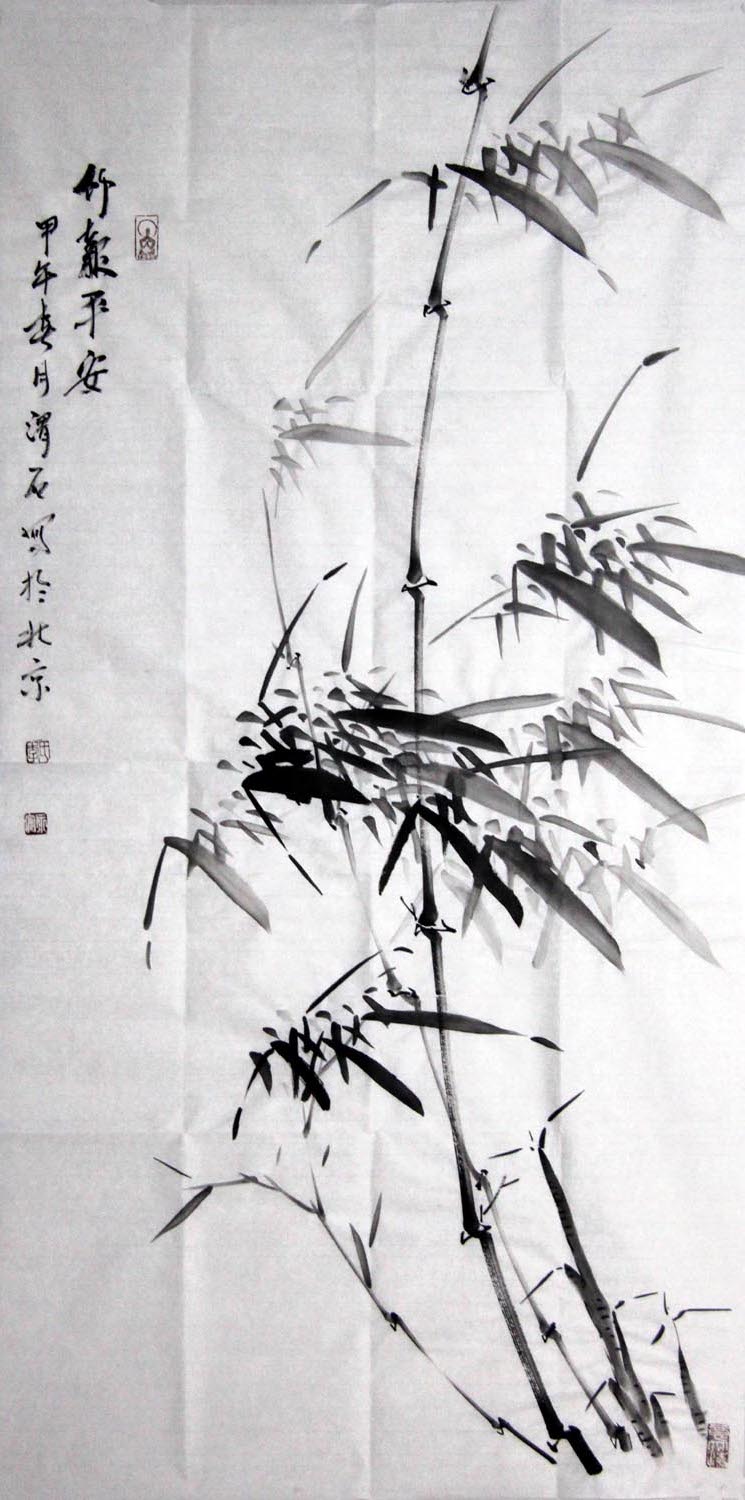 竹報平安
甲午春月渭石寫於北京